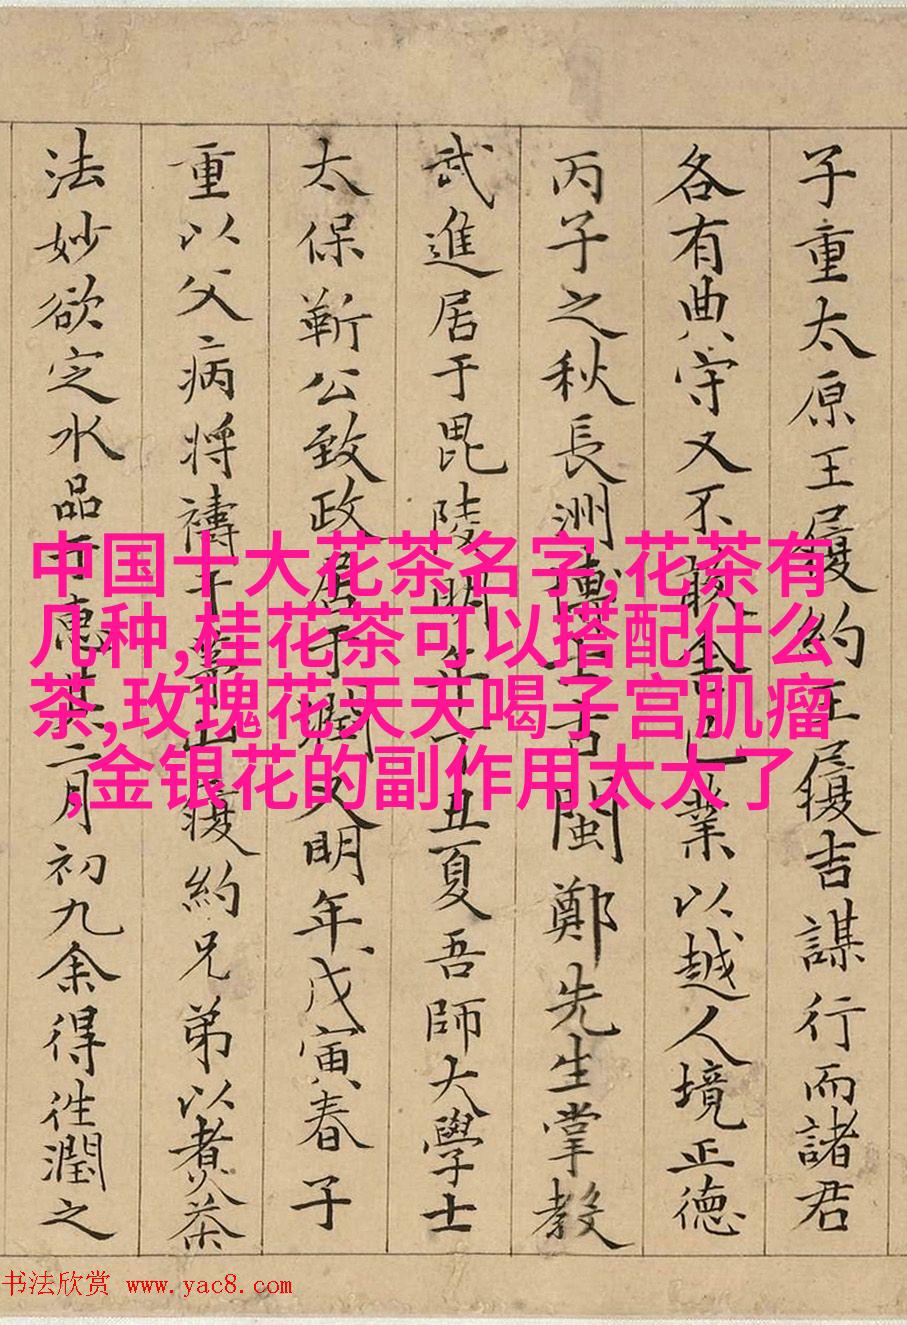 子重太原王履約王履吉謀行而諸君
各有典守又不能舍己業以越人境正德
丙子之秋長洲博士古閩鄭先生掌教
武進居于毘陵明年丁丑夏吾師大學士
太保靳公致政居于潤又明年戊寅春子
重以父病將禱于茅山履約兄弟以煮茶
法妙欲定水品于惠二月初九余得往潤之
中国十大花茶名字,花茶有
几种,桂花茶可以搭配什么
茶,玫瑰花天天喝子宫肌瘤
,金银花的副作用太大了
书法欣赏 www.yac8.com